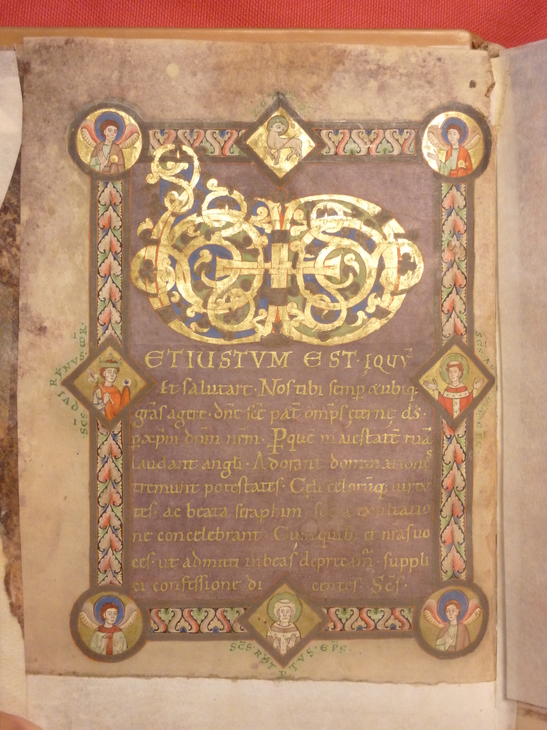 ETIUSTVM EST· IQUŪ
Et salutare · Nos tibi semp & ubiq;
gr̄as agere · dn̄e sc̄e pat̄ om̄ps & erne d̄s ·
p xp̄m dn̄m nr̄m · P que maiestatē tuā
laudant angli · Adorant dominationes
tremunt potestates · Celi celorūq; uirtu
tes · ac beata seraphim · socia exultatio
ne concelebrant · Cum quib; et nr̄as uo
ces · ut admitti iubeas deprecam̄ · suppli
ci confessione di centes · Sc̄s ·
SC̄S · · EP̄S ·